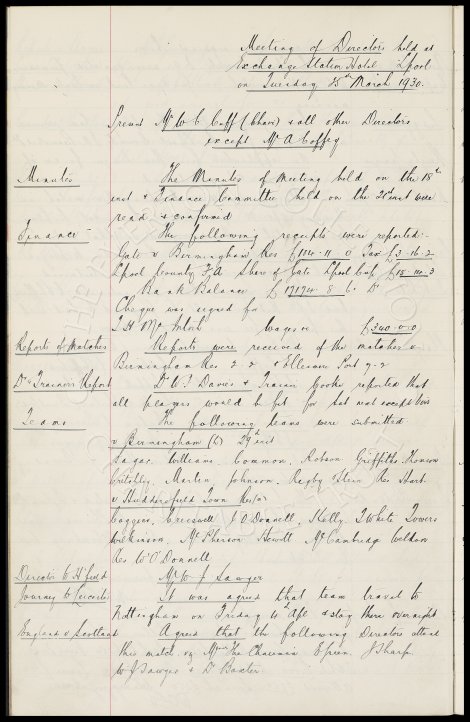 Meeting of Directors held at
Exchange Station Hotel Lpool
on Tuesday 25th March 1930.
Present Mr W C Cuff (Chair) & all other Directors
except Mr A Coffey
Minutes
The Minutes of Meeting held on the 18th
inst & Finance Committee held on the 21st inst were
read & confirmed
Finance
The following receipts were reported:-
Gate v Birmingham Res £114-11-0 Tax £3-16-2
Lpool County F.A. Share of Gate Lpool Cup £15-10-3
Bank Balance £17174-8-6 Dr
Cheque was signed for
T H McIntosh Wages &c £340-0-0
Reports of Matches
Reports were received of the matches v
Birmingham Res 2-2 & Ellesmere Port 7-2
Dr & Trainer's Report
Dr W J Davies & Trainer Cooke reported that
all players would be fit for Sat next except
Teams
The following teams were submitted
v Birmingham 29th inst
Sagar. Williams. Common. Robson Griffiths. Thomson
Critchley. Martin. Johnson. Rigby Stein. Res.
v Huddersfield Town Res
Coggins. Cresswell J O'Donnell, Kelly. T White Towers
Wilkinson. McPherson Hewitt McCambridge Weldon
Res W O'Donnell
Director to H'field
Mr W J Sawyer
Journey to Leicester
It was agreed that team travel to
Nottingham on Friday 4th Apl & stay there overnight
England v Scotland
Agreed that the following Directors attend
this match viz Messrs The Chairman E Green. J Sharp.
W J Sawyer & Dr Baxter.